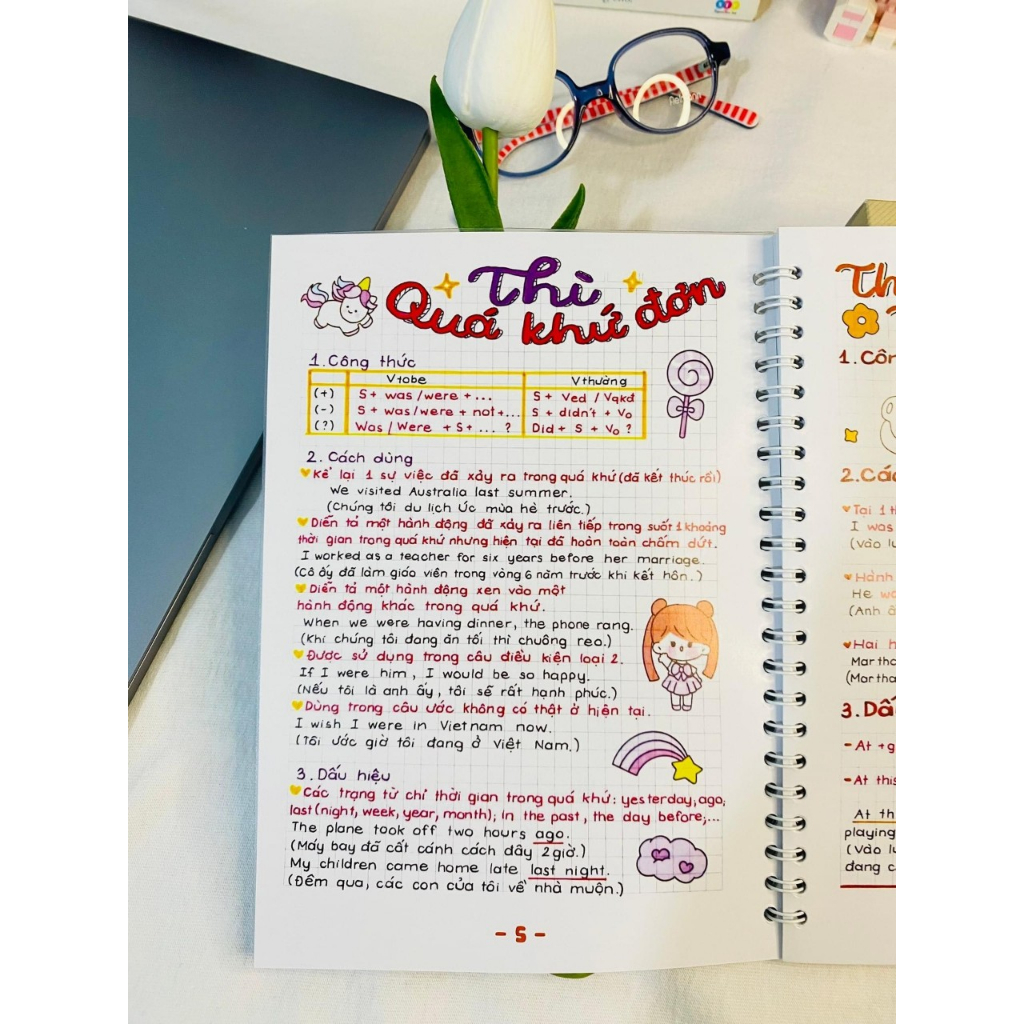 Thì
Quá khứ đơn
1. Công thức
Vtobe Vthường
(+) S + was / were + ... S + Ved / Vqkđ
(-) S + was / were + not + ... S + didn't + V₀
(?) Was / Were + S + ... ? Did + S + V₀ ?
2. Cách dùng
Kể lại 1 sự việc đã xảy ra trong quá khứ (đã kết thúc rồi)
We visited Australia last summer.
(Chúng tôi du lịch Úc mùa hè trước.)
Diễn tả một hành động đã xảy ra liên tiếp trong suốt 1 khoảng
thời gian trong quá khứ nhưng hiện tại đã hoàn toàn chấm dứt.
I worked as a teacher for six years before her marriage.
(Cô ấy đã làm giáo viên trong vòng 6 năm trước khi kết hôn.)
Diễn tả một hành động xen vào một
hành động khác trong quá khứ.
When we were having dinner, the phone rang.
(Khi chúng tôi đang ăn tối thì chuông reo.)
Được sử dụng trong câu điều kiện loại 2.
If I were him, I would be so happy.
(Nếu tôi là anh ấy, tôi sẽ rất hạnh phúc.)
Dùng trong câu ước không có thật ở hiện tại.
I wish I were in Viet nam now.
(Tôi ước giờ tôi đang ở Việt Nam.)
3. Dấu hiệu
Các trạng từ chỉ thời gian trong quá khứ: yesterday, ago,
last (night, week, year, month); in the past, the day before,...
The plane took off two hours ago.
(Máy bay đã cất cánh cách đây 2 giờ.)
My children came home late last night.
(Đêm qua, các con của tôi về nhà muộn.)
- 5 -
Th
1. Côn
2. Các
Tại 1 th
I was
(Vào lú
Hành
He wa
(Anh ấ
Hai h
Martha
(Martha
3. Dấ
- At + g
- At this
At th
playing
(Vào lú
đang c